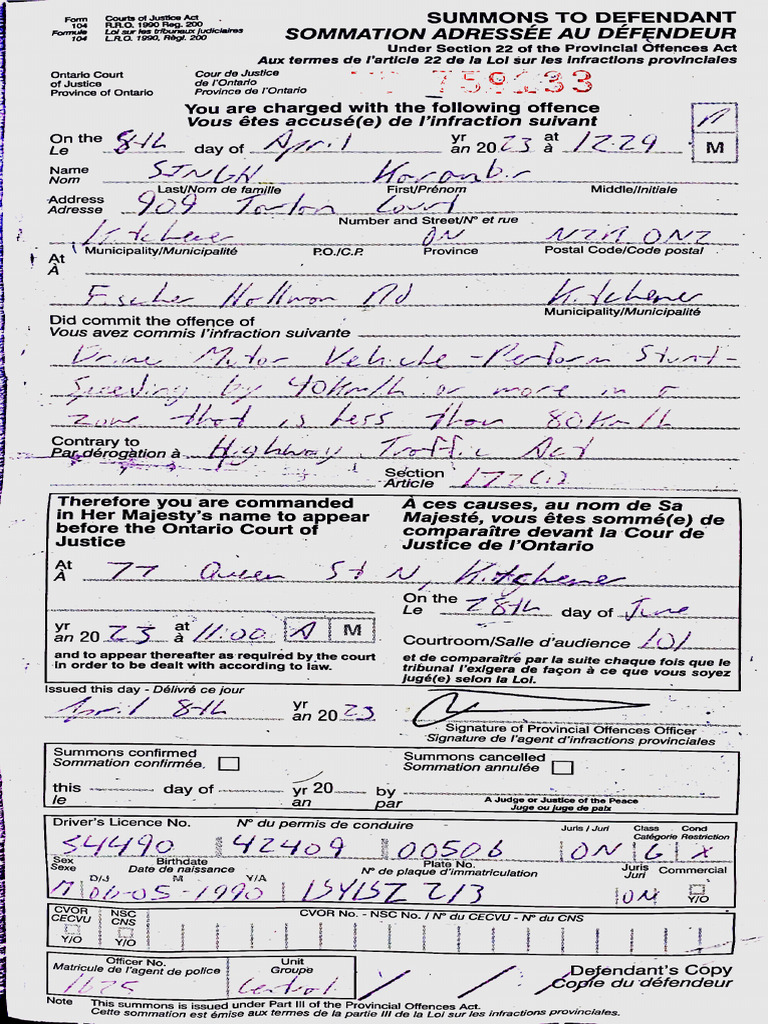 Form 104 Formule 104
Courts of Justice Act
R.R.O. 1990 Reg. 200
Loi sur les tribunaux judiciaires
L.R.O. 1990, Règl. 200
SUMMONS TO DEFENDANT
SOMMATION ADRESSÉE AU DÉFENDEUR
Under Section 22 of the Provincial Offences Act
Aux termes de l'article 22 de la Loi sur les infractions provinciales
Ontario Court of Justice Province of Ontario
Cour de Justice de l'Ontario Province de l'Ontario
You are charged with the following offence
Vous êtes accusé(e) de l'infraction suivant
On the Le 8th day of April yr an 2023 at à 12:29 M
Name Nom SINGH
Last/Nom de famille First/Prénom Middle/Initiale
Address Adresse 909 Court
Number and Street/N° et rue
Kitchener ON
Municipality/Municipalité P.O./C.P. Province Postal Code/Code postal
At À
Fischer Hallman Rd Kitchener
Municipality/Municipalité
Did commit the offence of
Vous avez commis l'infraction suivante
Drive Motor Vehicle - Perform Stunt -
Speeding by 40km/h or more in a
zone that is less than 80km/h
Contrary to Par dérogation à Highway Traffic Act
Section Article 172(1)
Therefore you are commanded in Her Majesty's name to appear before the Ontario Court of Justice
À ces causes, au nom de Sa Majesté, vous êtes sommé(e) de comparaître devant la Cour de Justice de l'Ontario
At À 77 Queen St N, Kitchener
On the Le 28th day of June
yr an 2023 at à 11:00 A M
Courtroom/Salle d'audience 101
and to appear thereafter as required by the court in order to be dealt with according to law.
et de comparaître par la suite chaque fois que le tribunal l'exigera de façon à ce que vous soyez jugé(e) selon la Loi.
Issued this day - Délivré ce jour
April 8th yr an 2023
Signature of Provincial Offences Officer
Signature de l'agent d'infractions provinciales
Summons confirmed Sommation confirmée
Summons cancelled Sommation annulée
this le day of yr 20 an by par
A Judge or Justice of the Peace
Juge ou juge de paix
Driver's Licence No. N° du permis de conduire Juris / Juri Class Catégorie Cond Restriction
S4490 42409 00506 ON G X
Sex Sexe Birthdate Date de naissance D/J M Y/A Plate No. N° de plaque d'immatriculation Juris Juri Commercial
M 06-05-1990 ON Y/O
CVOR CECVU Y/O NSC CNS Y/O CVOR No. - NSC No. / N° du CECVU - N° du CNS
Officer No. Matricule de l'agent de police 1625
Unit Groupe Central
Defendant's Copy
Copie du défendeur
Note This summons is issued under Part III of the Provincial Offences Act.
Cette sommation est émise aux termes de la partie III de la Loi sur les infractions provinciales.